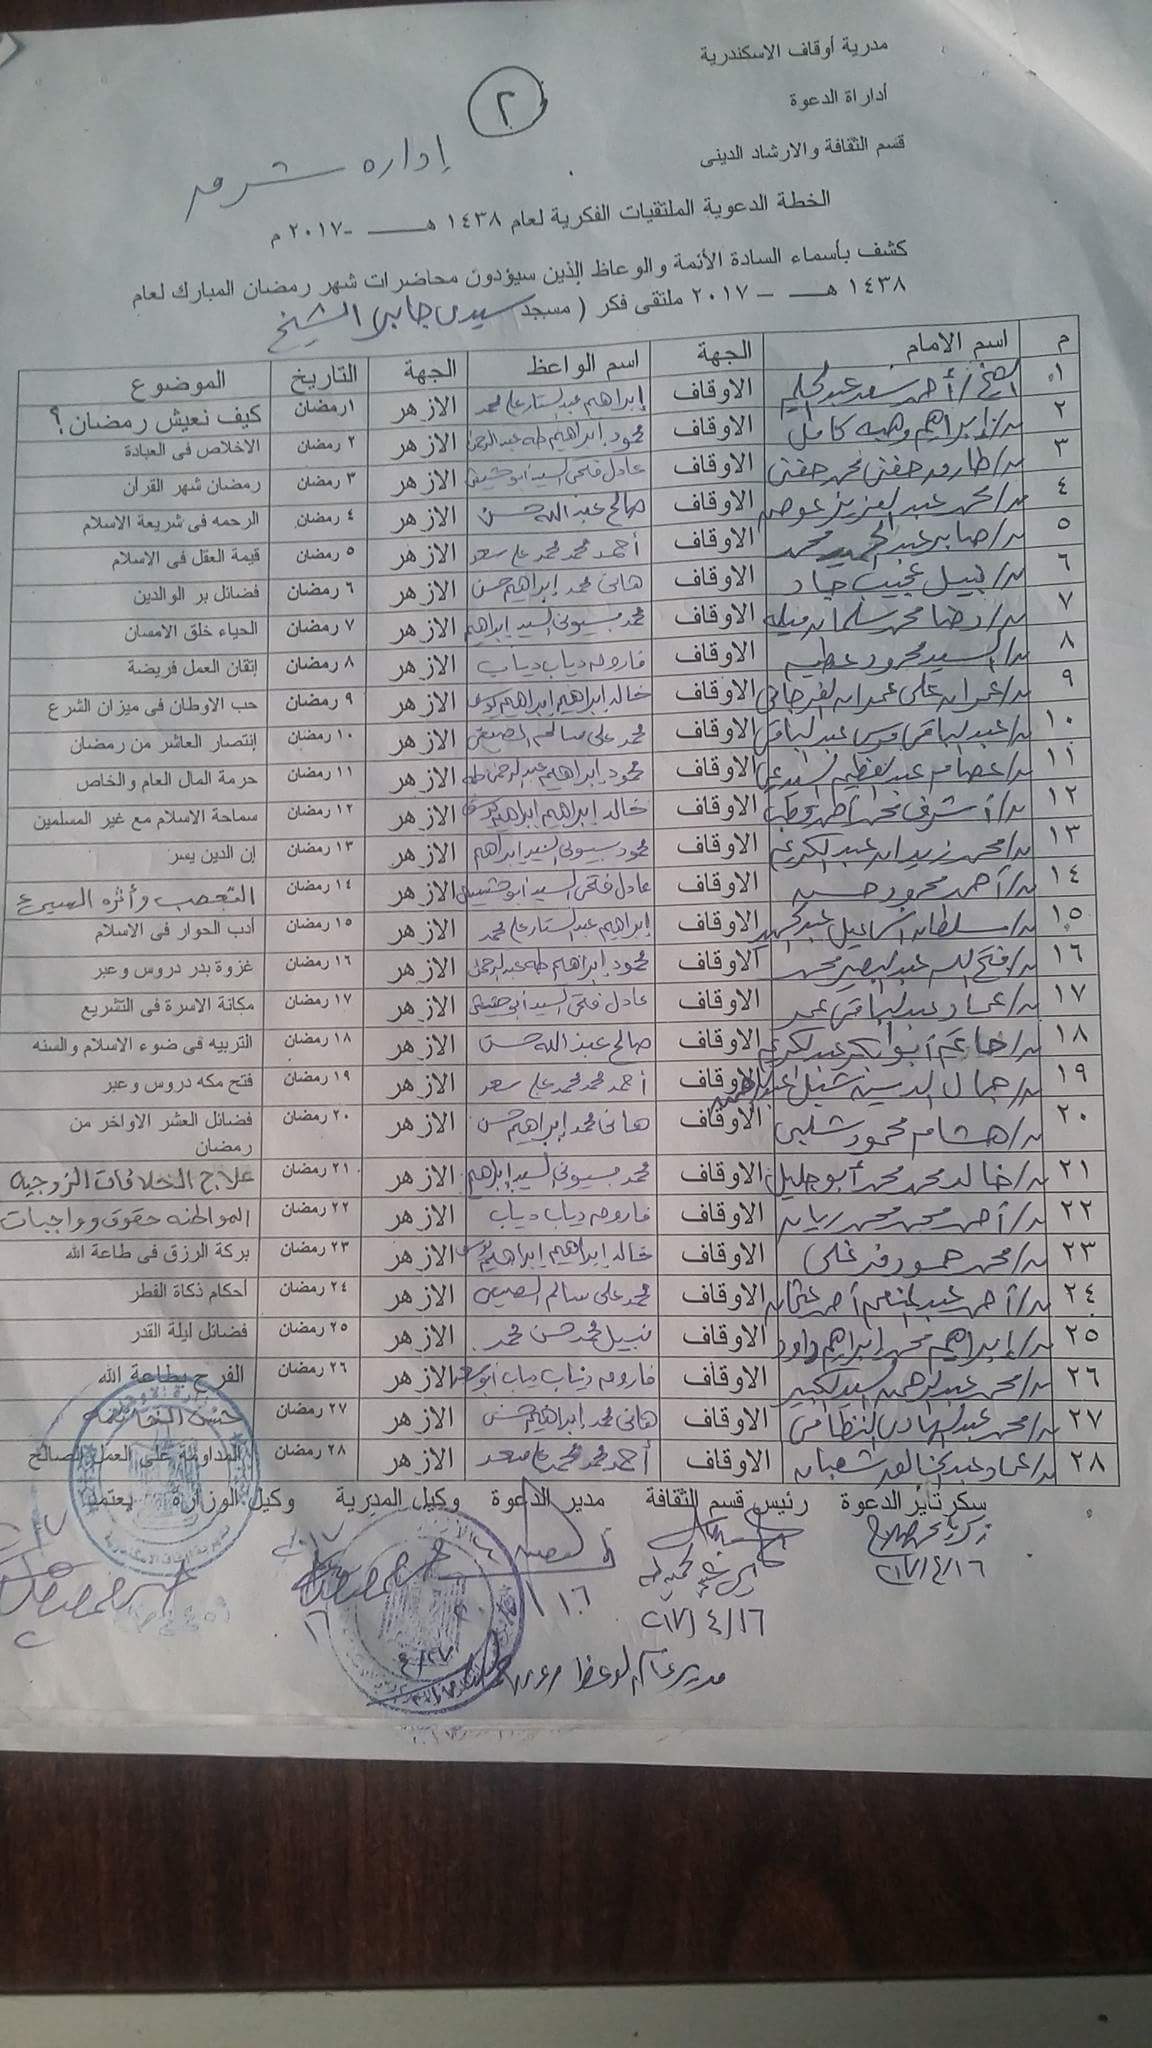 مدرية أوقاف الاسكندرية
أداراة الدعوة
قسم الثقافة والارشاد الدينى
٢
إداره شرق
الخطة الدعوية الملتقيات الفكرية لعام ١٤٣٨ هـ - ٢٠١٧ م
كشف بأسماء السادة الأئمة والوعاظ الذين سيؤدون محاضرات شهر رمضان المبارك لعام
١٤٣٨ هـ – ٢٠١٧ ملتقى فكر ( مسجد سيدى جابر الشيخ
م اسم الامام الجهة اسم الواعظ الجهة التاريخ الموضوع
١ الشيخ / أحمد سعد عبد الحليم الاوقاف إبراهيم عبد الستار على محمد الازهر ١رمضان كيف نعيش رمضان ؟
٢ إبراهيم وهبه كامل الاوقاف محمود إبراهيم طه عبد الرحمن الازهر ٢ رمضان الاخلاص فى العبادة
٣ طارق حفنى محمد حفنى الاوقاف عادل فتحى السيد أبو الازهر ٣ رمضان رمضان شهر القرأن
٤ محمد عبد العزيز عوض الاوقاف صالح عبد الله حسن الازهر ٤ رمضان الرحمه فى شريعة الاسلام
٥ صابر عبد الحميد محمد الاوقاف أحمد محمد محمد على سعد الازهر ٥ رمضان قيمة العقل فى الاسلام
٦ نبيل نجيب جاد الاوقاف هانى محمد إبراهيم حسن الازهر ٦ رمضان فضائل بر الوالدين
٧ رضا محمد سلمان الاوقاف محمد بسيونى السيد إبراهيم الازهر ٧ رمضان الحياء خلق الامسان
٨ السيد محمود عطيه الاوقاف فاروق دياب دياب الازهر ٨ رمضان إتقان العمل فريضة
٩ عمران على عمران الاوقاف خالد إبراهيم إبراهيم الازهر ٩ رمضان حب الاوطان فى ميزان الشرع
١٠ عبد الباقى عبد الباقى الاوقاف محمد على سالم الازهر ١٠ رمضان إنتصار العاشر من رمضان
١١ عصام عبد العظيم الاوقاف محمود إبراهيم عبد الرحمن طه الازهر ١١ رمضان حرمة المال العام والخاص
١٢ أشرف محمد أحمد الاوقاف خالد إبراهيم إبراهيم الازهر ١٢ رمضان سماحة الاسلام مع غير المسلمين
١٣ محمد زيدان عبد الكريم الاوقاف محمود بسيونى السيد إبراهيم الازهر ١٣ رمضان إن الدين يسر
١٤ أحمد محمود حسن الاوقاف عادل فتحى السيد أبو الازهر ١٤ رمضان التعصب وأثره السيئ
١٥ سلطان إسماعيل الاوقاف إبراهيم عبد الستار على محمد الازهر ١٥ رمضان أدب الحوار فى الاسلام
١٦ فتح الله عبد البصير محمد الاوقاف محمود إبراهيم طه عبد الرحمن الازهر ١٦ رمضان غزوة بدر دروس وعبر
١٧ عماد عبد الباقى الاوقاف عادل فتحى السيد الازهر ١٧ رمضان مكانة الاسرة فى التشريع
١٨ أبو بكر عبد الكريم الاوقاف صالح عبد الله حسن الازهر ١٨ رمضان التربيه فى ضوء الاسلام والسنه
١٩ جمال الدين الاوقاف أحمد محمد محمد على سعد الازهر ١٩ رمضان فتح مكه دروس وعبر
٢٠ هشام محمود شلبى الاوقاف هانى محمد إبراهيم حسن الازهر ٢٠ رمضان فضائل العشر الاواخر من
رمضان
٢١ خالد محمد محمد أبو جليل الاوقاف محمد بسيونى السيد إبراهيم الازهر ٢١ رمضان علاج الخلافات الزوجيه
٢٢ أحمد محمد محمد ريان الاوقاف فاروق دياب دياب الازهر ٢٢ رمضان المواطنه حقوق وواجبات
٢٣ محمد على الاوقاف خالد إبراهيم إبراهيم الازهر ٢٣ رمضان بركة الرزق فى طاعة الله
٢٤ أحمد عبد المنعم أحمد عثمان الاوقاف محمد على سالم الازهر ٢٤ رمضان أحكام ذكاة الفطر
٢٥ إبراهيم محمد إبراهيم داود الاوقاف نبيل محمد حسن محمد الازهر ٢٥ رمضان فضائل ليلة القدر
٢٦ محمد عبد الرحمن السيد الاوقاف فاروق دياب دياب الازهر ٢٦ رمضان الفرح بطاعة الله
٢٧ محمد عبد الهادى النظامى الاوقاف هانى محمد إبراهيم حسن الازهر ٢٧ رمضان حسن الخاتمه
٢٨ عماد عبد الخالق شعبان الاوقاف أحمد محمد محمد على سعد الازهر ٢٨ رمضان المداومة على العمل الصالح
سكرتاير الدعوة رئيس قسم الثقافة مدير الدعوة وكيل المديرية وكيل الوزارة يعتمد
٢٠١٧/٤/١٦
٢٠١٧/٤/١٦
مدير عام الوعظ